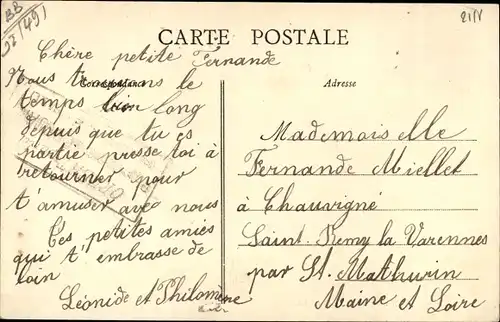 BB
92/49
21N
CARTE POSTALE
Correspondance
Adresse
Chère petite Fernande
Nous trouvons le
temps bien long
depuis que tu es
partie presse toi à
retourner pour
t'amuser avec nous
Tes petites amies
qui t'embrasse de
loin
Léonide et Philomène
Mademoiselle
Fernande Miellet
à Chauvigné
Saint-Remy la Varennes
par St. Mathurin
Maine et Loire